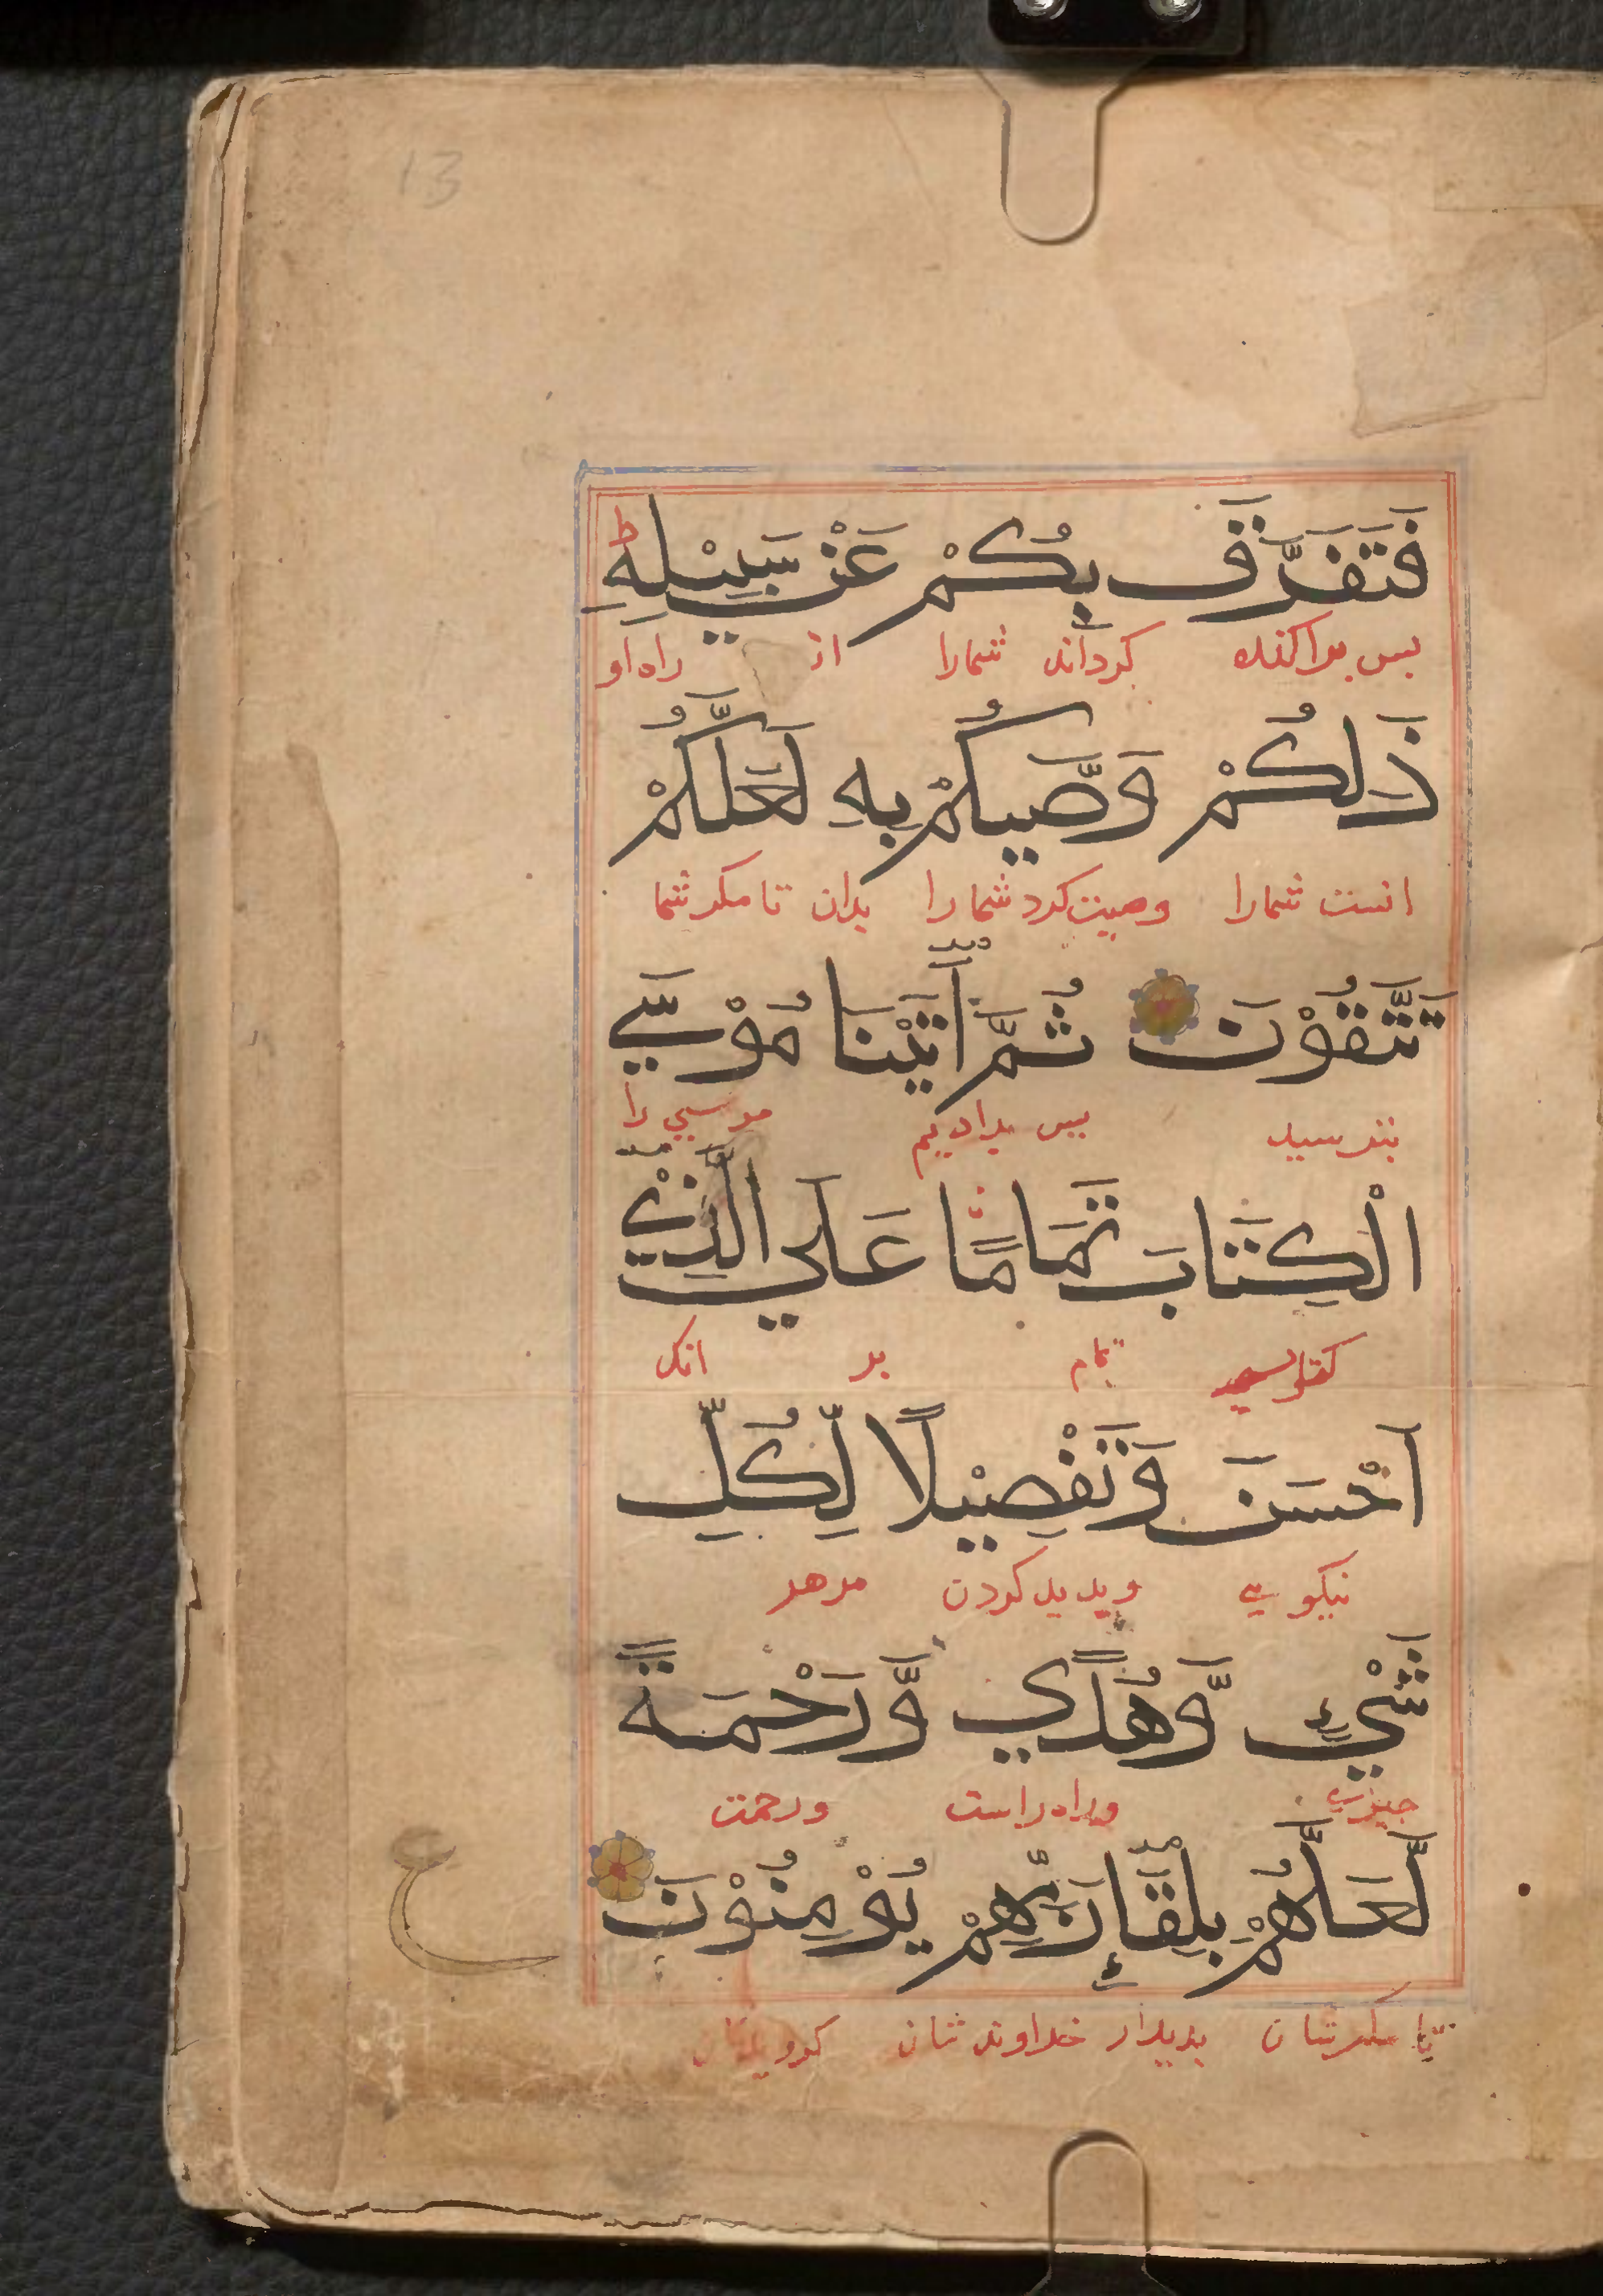 13
فَتَفَرَّقَ بِكُمْ عَنْ سَبِيْلِهِ ط
بس براكنده كرداند شمارا از راه او
ذَلِكُمْ وَصَّيكُمْ بِهِ لَعَلَّكُمْ
انست شمارا وصيت كرد شمارا بدان تا مكر شما
تَتَّقُوْنَ ثُمَّ أٰتَيْنَا مُوْسَي
بترسيد بس بداديم موسي را
الْكِتَابَ تَمَامًا عَلَي الَّذِيْ
تمام بر انك
اَحْسَنَ وَتَفْصِيْلًا لِّكُلِّ
نيكويي وبديد كردن مرهر
شَيْءٍ وَّهُدًي وَّرَحْمَةً
جيزي وراه راست ورحمت
لَّعَلَّهُمْ بِلِقَاءِ رَبِّهِمْ يُؤْمِنُوْنَ
تا مكر شان بديدار خداوند شان